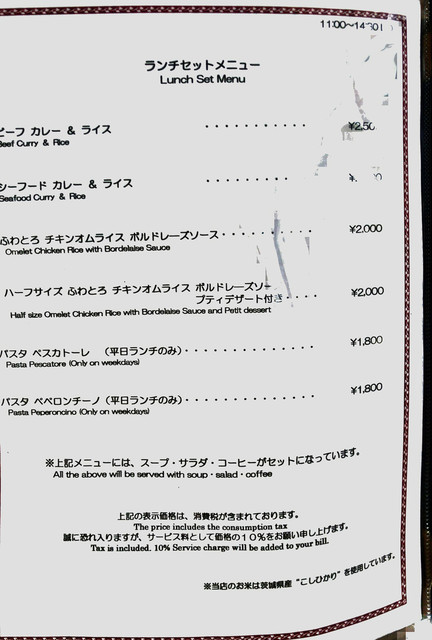 11:00～14:30
ランチセットメニュー
Lunch Set Menu
ビーフ カレー ＆ ライス ・・・・・・・・・・・
Beef Curry & Rice
シーフード カレー ＆ ライス ・・・・・・・・・
Seafood Curry & Rice
ふわとろ チキンオムライス ボルドレーズソース・・・・・・・・・・ ¥2,000
Omelet Chicken Rice with Bordelaise Sauce
ハーフサイズ ふわとろ チキンオムライス ボルドレーズソー
プティデザート付き・・・・ ¥2,000
Half size Omelet Chicken Rice with Bordelaise Sauce and Petit dessert
パスタ ペスカトーレ （平日ランチのみ）・・・・・・・・・・・・・ ¥1,800
Pasta Pescatore (Only on weekdays)
パスタ ペペロンチーノ（平日ランチのみ）・・・・・・・・・・・・・ ¥1,800
Pasta Peperoncino (Only on weekdays)
※上記メニューには、スープ・サラダ・コーヒーがセットになっています。
All the above will be served with soup・salad・coffee
上記の表示価格は、消費税が含まれております。
The price includes the consumption tax
誠に恐れ入りますが、サービス料として価格の１０％をお願い申し上げます。
Tax is included. 10% Service charge will be added to your bill.
※当店のお米は茨城県産 "こしひかり" を使用しています。